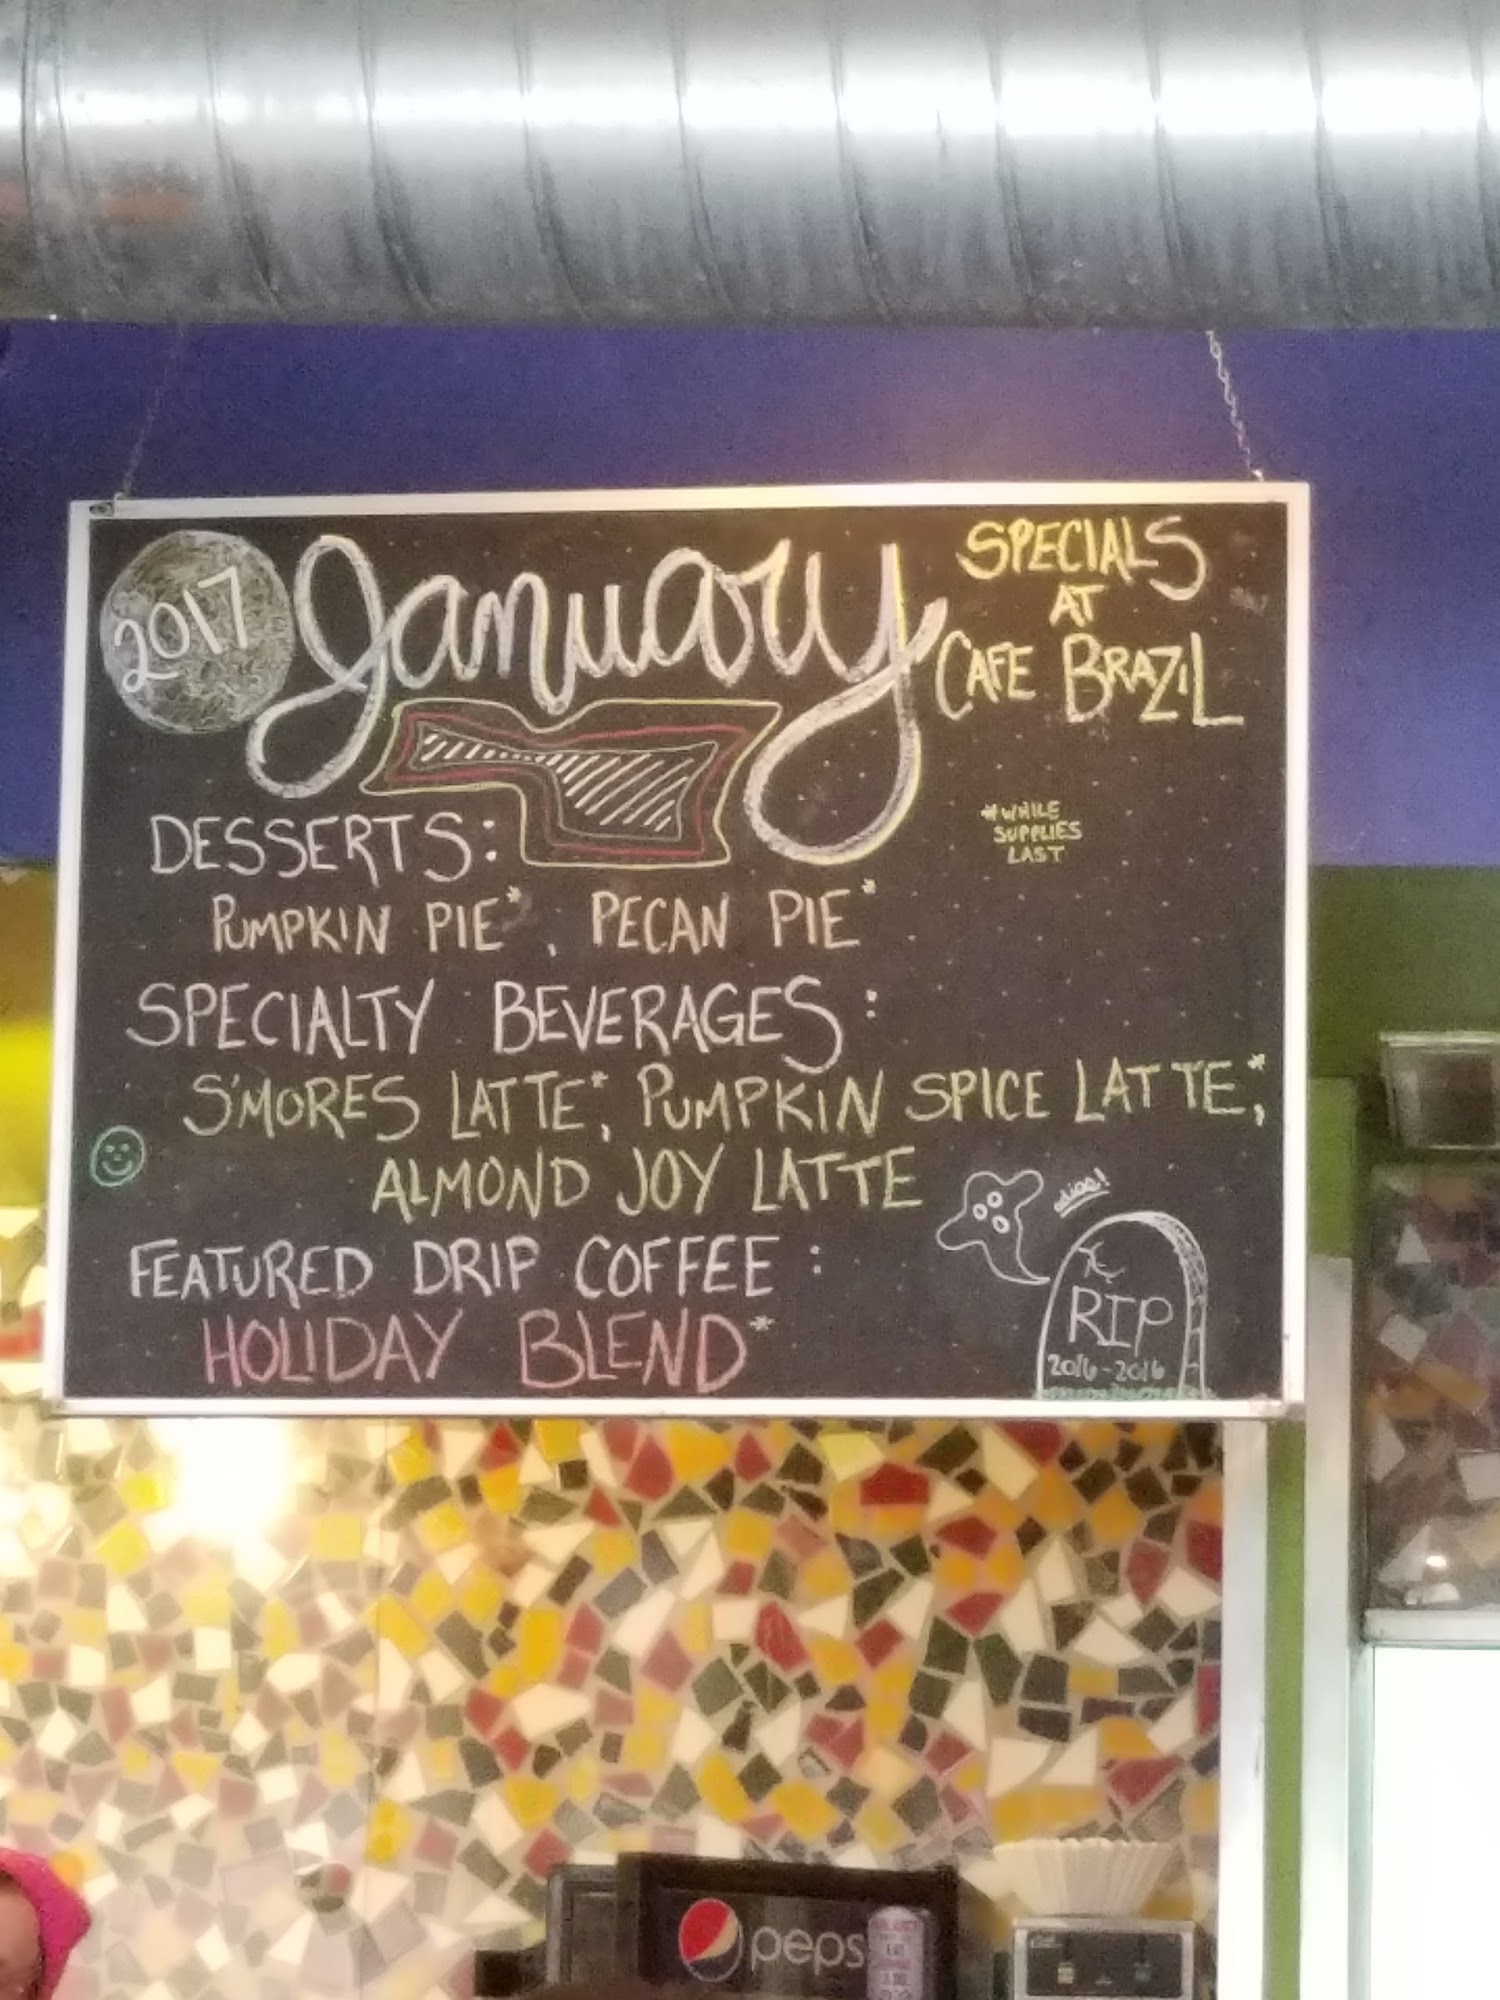 2017
January
SPECIALS
AT
CAFE BRAZIL
*WHILE
SUPPLIES
LAST
DESSERTS:
PUMPKIN PIE*, PECAN PIE*
SPECIALTY BEVERAGES:
S'MORES LATTE*, PUMPKIN SPICE LATTE*,
ALMOND JOY LATTE
FEATURED DRIP COFFEE:
HOLIDAY BLEND*
adios!
RIP
2016-2016
peps